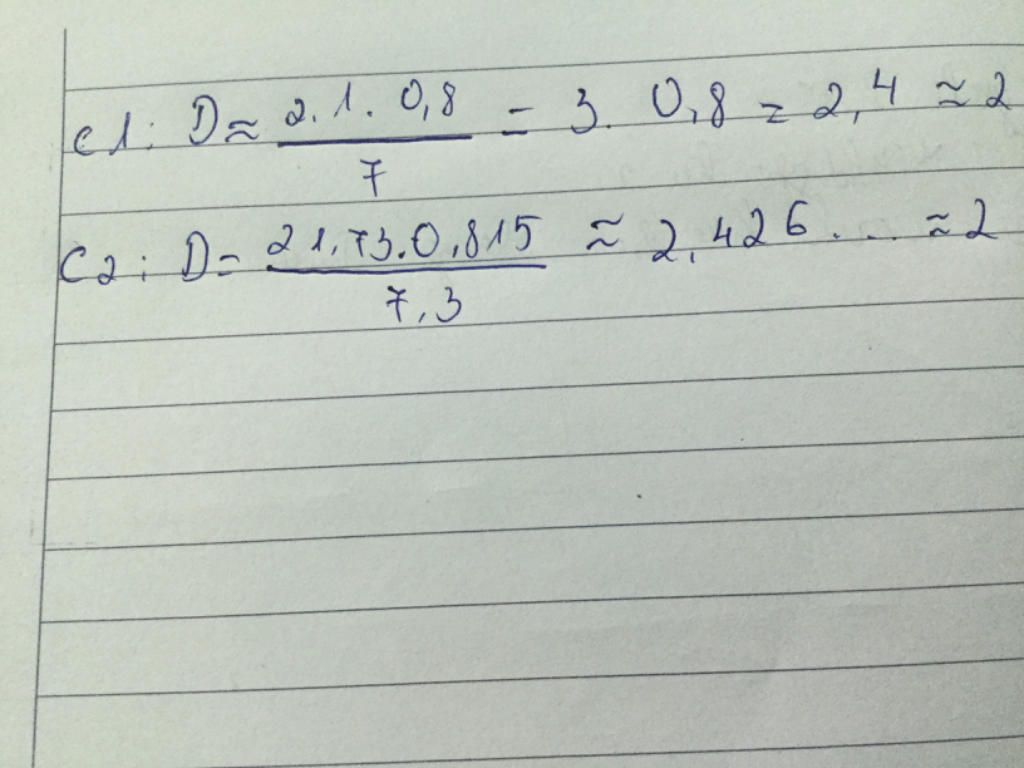 C1: D ≈ 2.1.0,8 / 7 = 3.0,8 = 2,4 ≈ 2
C2: D = 21,73.0,815 / 7,3 ≈ 2,426... ≈ 2